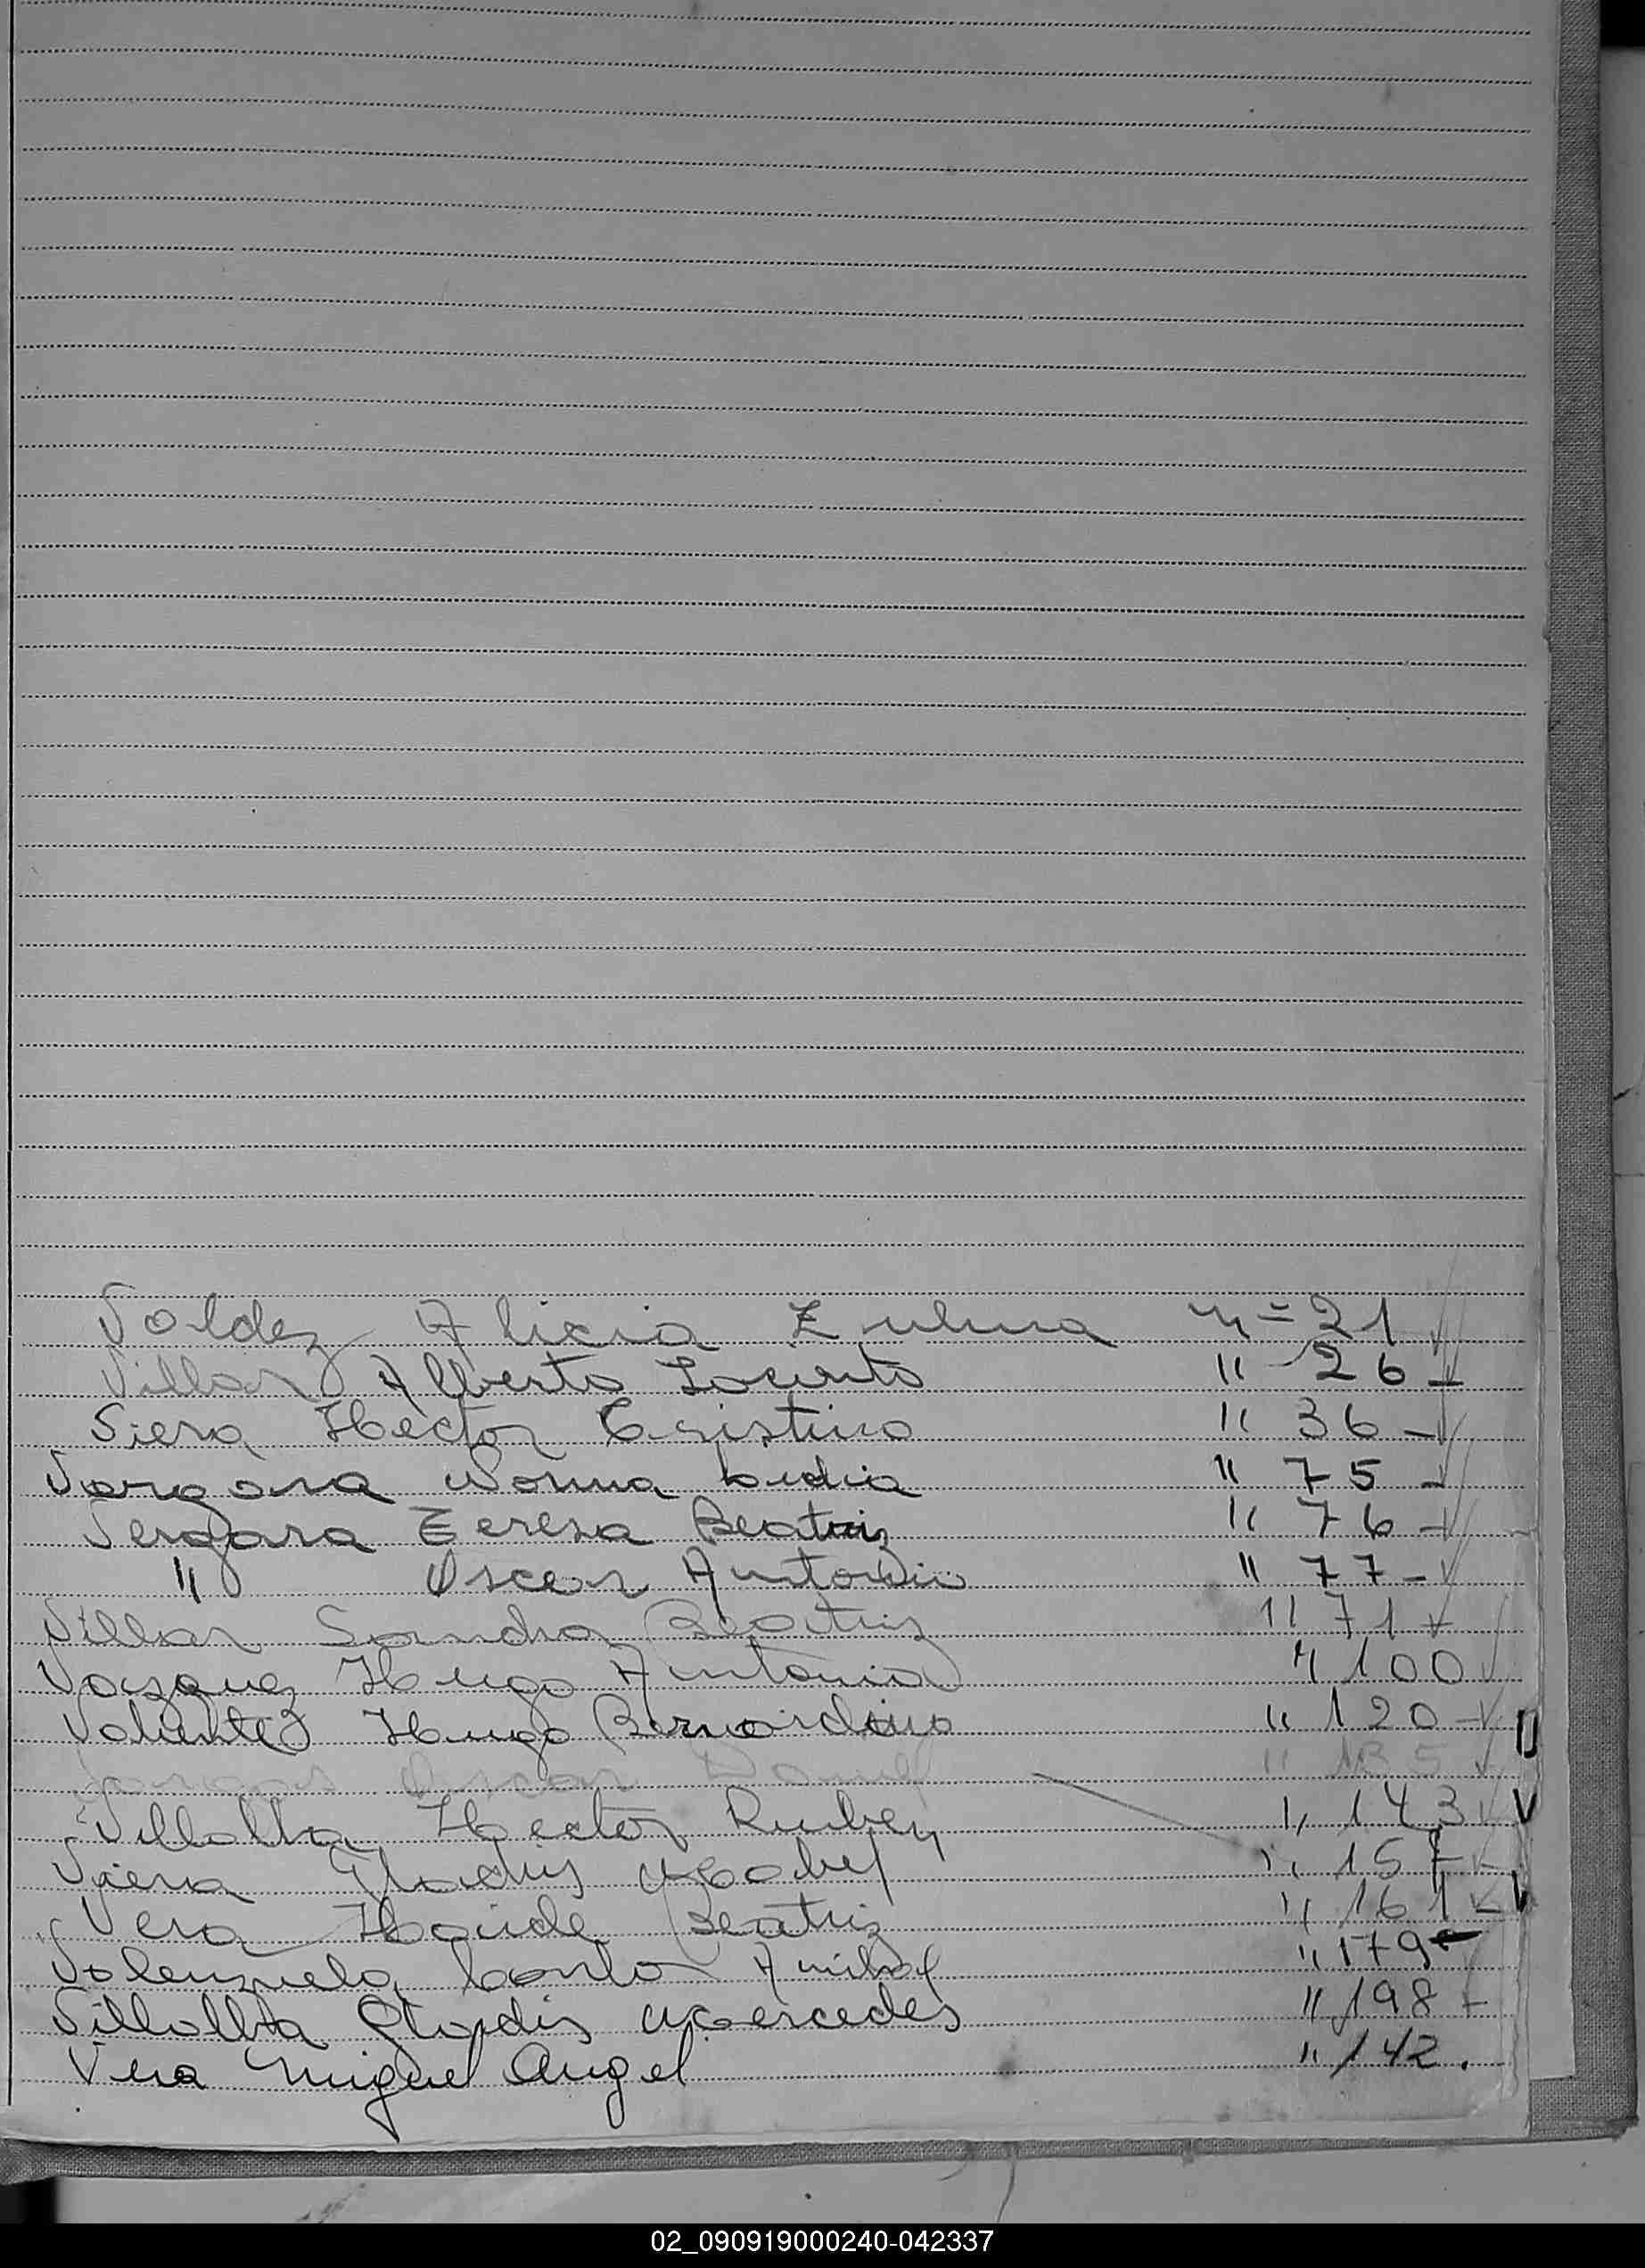 Valdez Alicia Zulma nº=21
Villar Alberto Jacinto " 26 -
Siera Hector Cristino " 36 -
Vergara Norma Lidia " 75 -
Vergara Teresa Beatriz " 76 -
" Oscar Antonio " 77 -
Villar Sandra Beatriz " 71
Vazquez Hugo Antonio " 100
Valiente Hugo Bernardino " 120 -
Oscar " 135
Villalba Hector Ruben " 143
Viera Gladis Mabel " 157
Vera Haide Beatriz " 161
Valenzuela Carlos Anibal " 179
Villalba Gladis Mercedes " 198 -
Vera Miguel Angel " 142.
02_090919000240-042337